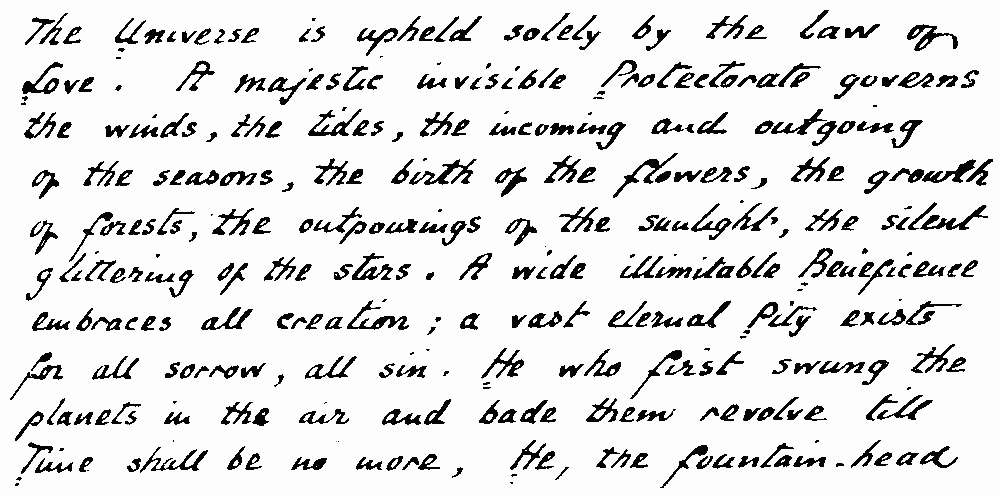 The Universe is upheld solely by the law of
Love. A majestic invisible Protectorate governs
the winds, the tides, the incoming and outgoing
of the seasons, the birth of the flowers, the growth
of forests, the outpourings of the sunlight, the silent
glittering of the stars. A wide illimitable Beneficence
embraces all creation; a vast eternal Pity exists
for all sorrow, all sin. He who first swung the
planets in the air and bade them revolve till
Time shall be no more, He, the fountain-head